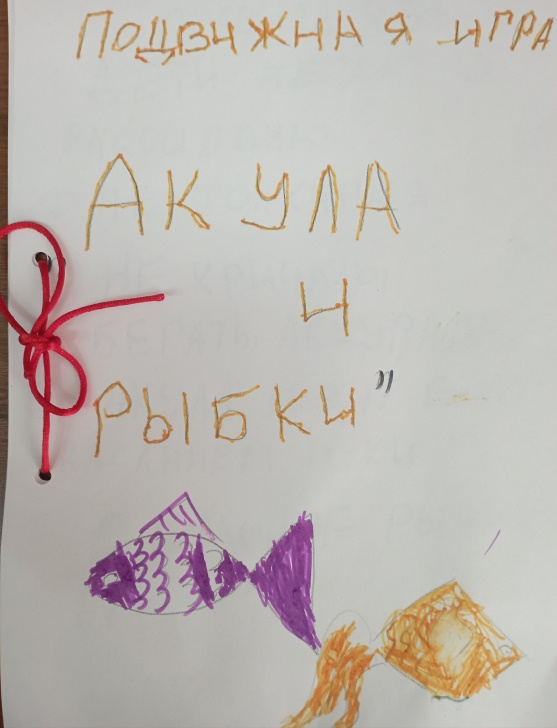 ПОДВИЖНАЯ ИГРА
АКУЛА
И
РЫБКИ"